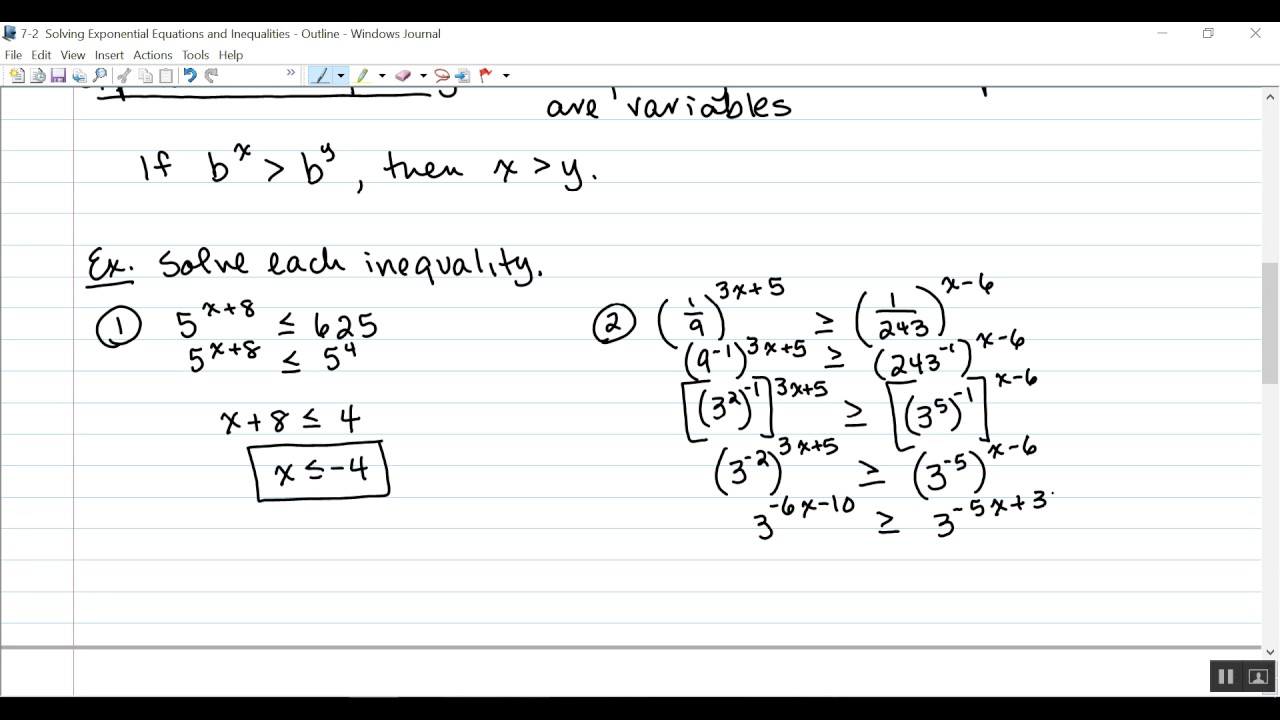 7-2 Solving Exponential Equations and Inequalities - Outline - Windows Journal
File Edit View Insert Actions Tools Help
are variables
If b^x > b^y, then x > y.
Ex. Solve each inequality.
① 5^(x+8) ≤ 625
5^(x+8) ≤ 5^4
x + 8 ≤ 4
x ≤ -4
② (1/9)^(3x+5) ≥ (1/243)^(x-6)
(9^-1)^(3x+5) ≥ (243^-1)^(x-6)
[(3^2)^-1]^(3x+5) ≥ [(3^5)^-1]^(x-6)
(3^-2)^(3x+5) ≥ (3^-5)^(x-6)
3^(-6x-10) ≥ 3^(-5x+3